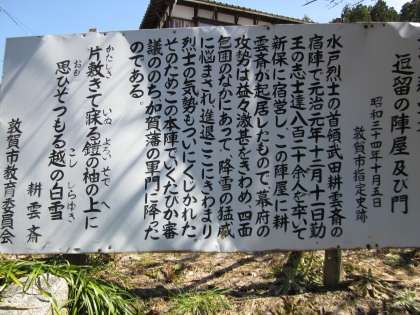 逗留の陣屋及び門
昭和三十四年十月五日
敦賀市指定史跡
水戸烈士の首領武田耕雲斎の
宿陣で元治元年十二月十一日勤
王の志士達八百二十余人を率いて
新保に宿営し、この陣屋に耕
雲斎が起居したもので、幕府の
攻勢は益々激甚をきわめ、四面
包囲のなかにあって、降雪の猛威
に悩まされ、進退ここにきわまり
烈士の気勢もついにくじかれた
そのためこの本陣でいくたびか審
議ののち加賀藩の軍門に降った
のである。
片敷きて寐る鎧の袖の上に
かたしき いぬ よろい そで へ
思ひぞつもる越の白雪
おも こし しらゆき
耕雲斎
敦賀市教育委員会